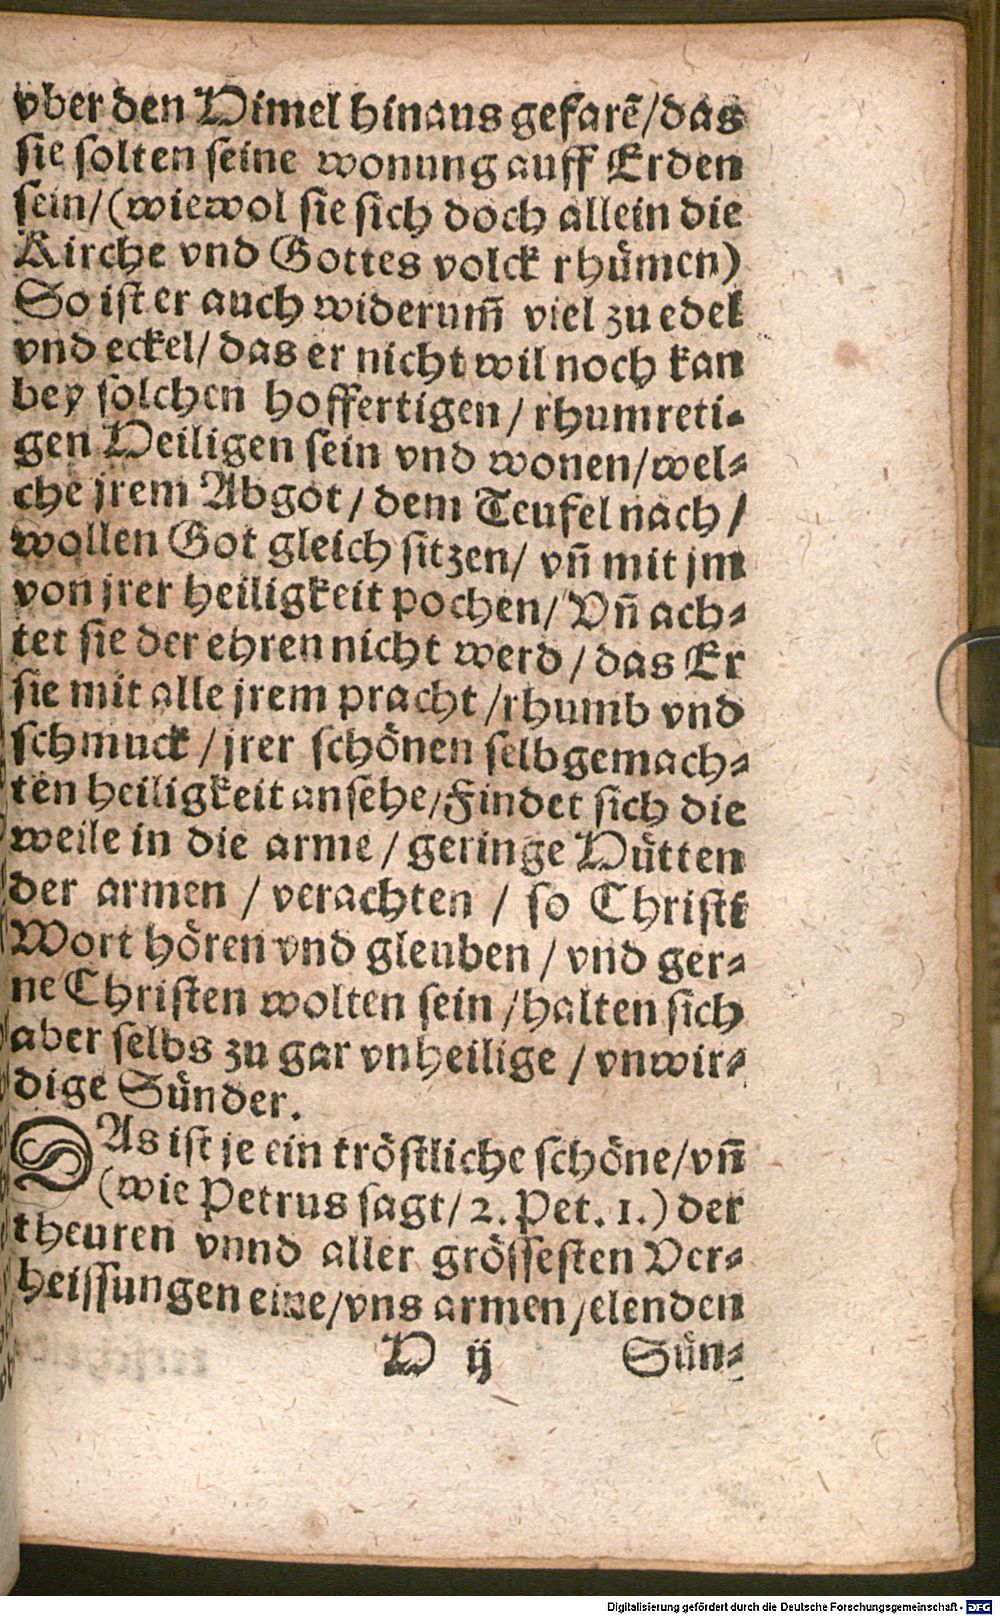 vber den Himel hinaus gefarẽ/das
sie solten seine wonung auff Erden
sein/(wiewol sie sich doch allein die
Kirche vnd Gottes volck rhümen)
So ist er auch widerum̃ viel zu edel
vnd eckel/das er nicht wil noch kan
bey solchen hoffertigen/rhumreti-
gen Heiligen sein vnd wonen/wel-
che jrem Abgot/dem Teufel nach/
wollen Got gleich sitzen/vñ mit jm
von jrer heiligkeit pochen/Vñ ach-
tet sie der ehren nicht werd/das Er
sie mit alle jrem pracht/rhumb vnd
schmuck/jrer schönen selbgemach-
ten heiligkeit ansehe/Findet sich die
weile in die arme/geringe Hütten
der armen/verachten/so Christi
Wort hören vnd gleuben/vnd ger-
ne Christen wolten sein/halten sich
aber selbs zu gar vnheilige/vnwir-
dige Sünder.
DAs ist je ein tröstliche schöne/vñ
(wie Petrus sagt/2. Pet. 1.) der
theuren vnnd aller grössesten Ver-
heissungen eine/vns armen/elenden
H ij Sün-
Digitalisierung gefördert durch die Deutsche Forschungsgemeinschaft - DFG